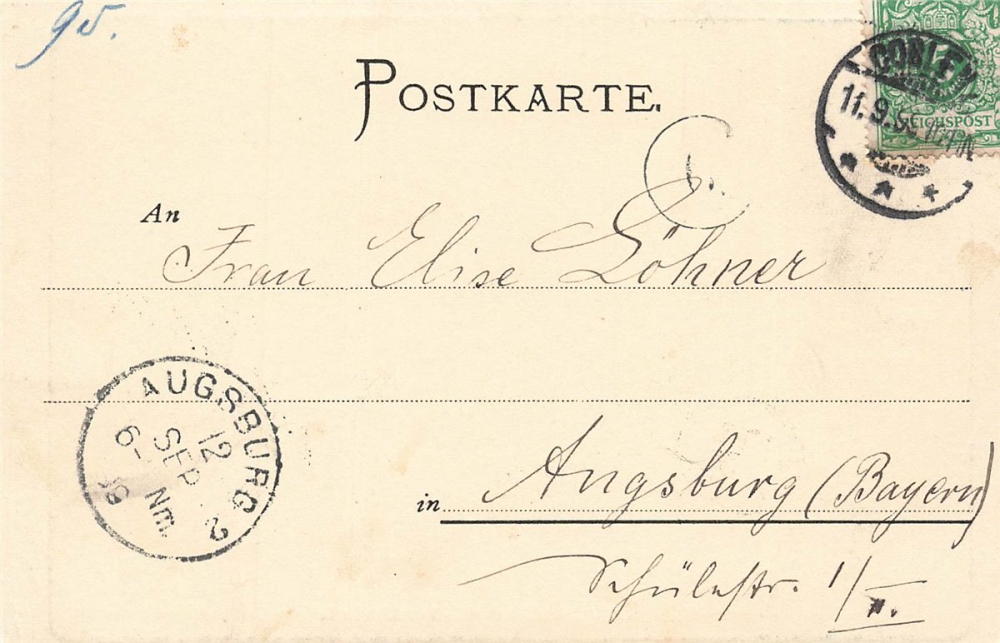 95.
POSTKARTE.
COBLEN
11.9.
5
REICHSPOST
An
Frau Elise Löhner
AUGSBURG 2
12
SEP
6- Nm
in Augsburg (Bayern)
Schülestr. 1/II.